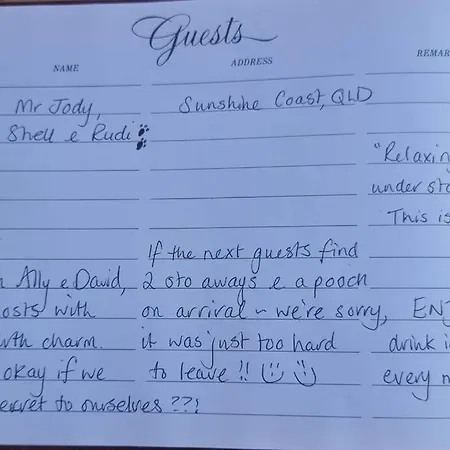 Guests
NAME ADDRESS REMAR
Mr Jody, Sunshine Coast, QLD
Shell e Rudi
"Relaxin
under sto
This is
If the next guests find
n Ally e David, 2 sto aways e a pooch
osts with on arrival ~ we're sorry, ENJ
wth charm. it was just too hard drink i
okay if we to leave !! every n
ecret to ourselves ??!